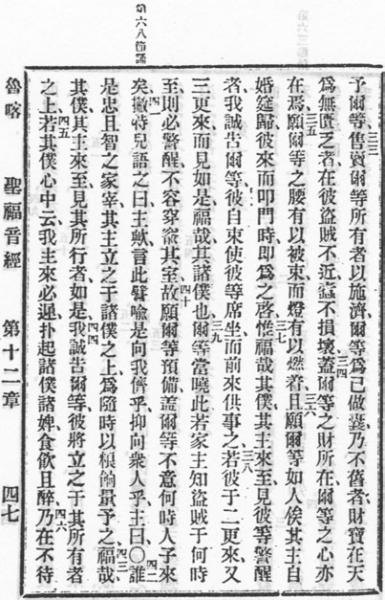 予爾等售賣爾等所有者以施濟爾等爲已做囊乃不舊者財寶在天
三三
爲無匱乏者在彼盜賊不近蠹不損壞蓋爾等之財所在爾等之心亦
三四
在焉願爾等之腰有以被束而燈有以燃着且願爾等如人俟其主自
三五
三六
婚筵歸彼來而叩門時即爲之啓惟福哉其僕其主來至見彼等警醒
三七
者我誠告爾等彼自束使彼等席坐而前來供事之若彼于二更來又
三八
三更來而見如是福哉其諸僕也爾等當曉此若家主知盜賊于何時
三九
至則必警醒不容穿窬其室故願爾等預備蓋爾等不意何時人子來
四十
矣徽特兒語之曰主歟言此譬喻是向我儕乎抑向衆人乎主曰〇誰
四一
四二
是忠且智之家宰其主立之于諸僕之上爲隨時以糗餉量予之福哉
四三
其僕其主來至見其所行者如是我誠告爾等彼將立之于其所有者
四四
之上若其僕心中云我主來必遲扑起諸僕諸婢食飲且醉乃在不待
四五
四六
魯喀 聖福音經 第十二章 四七